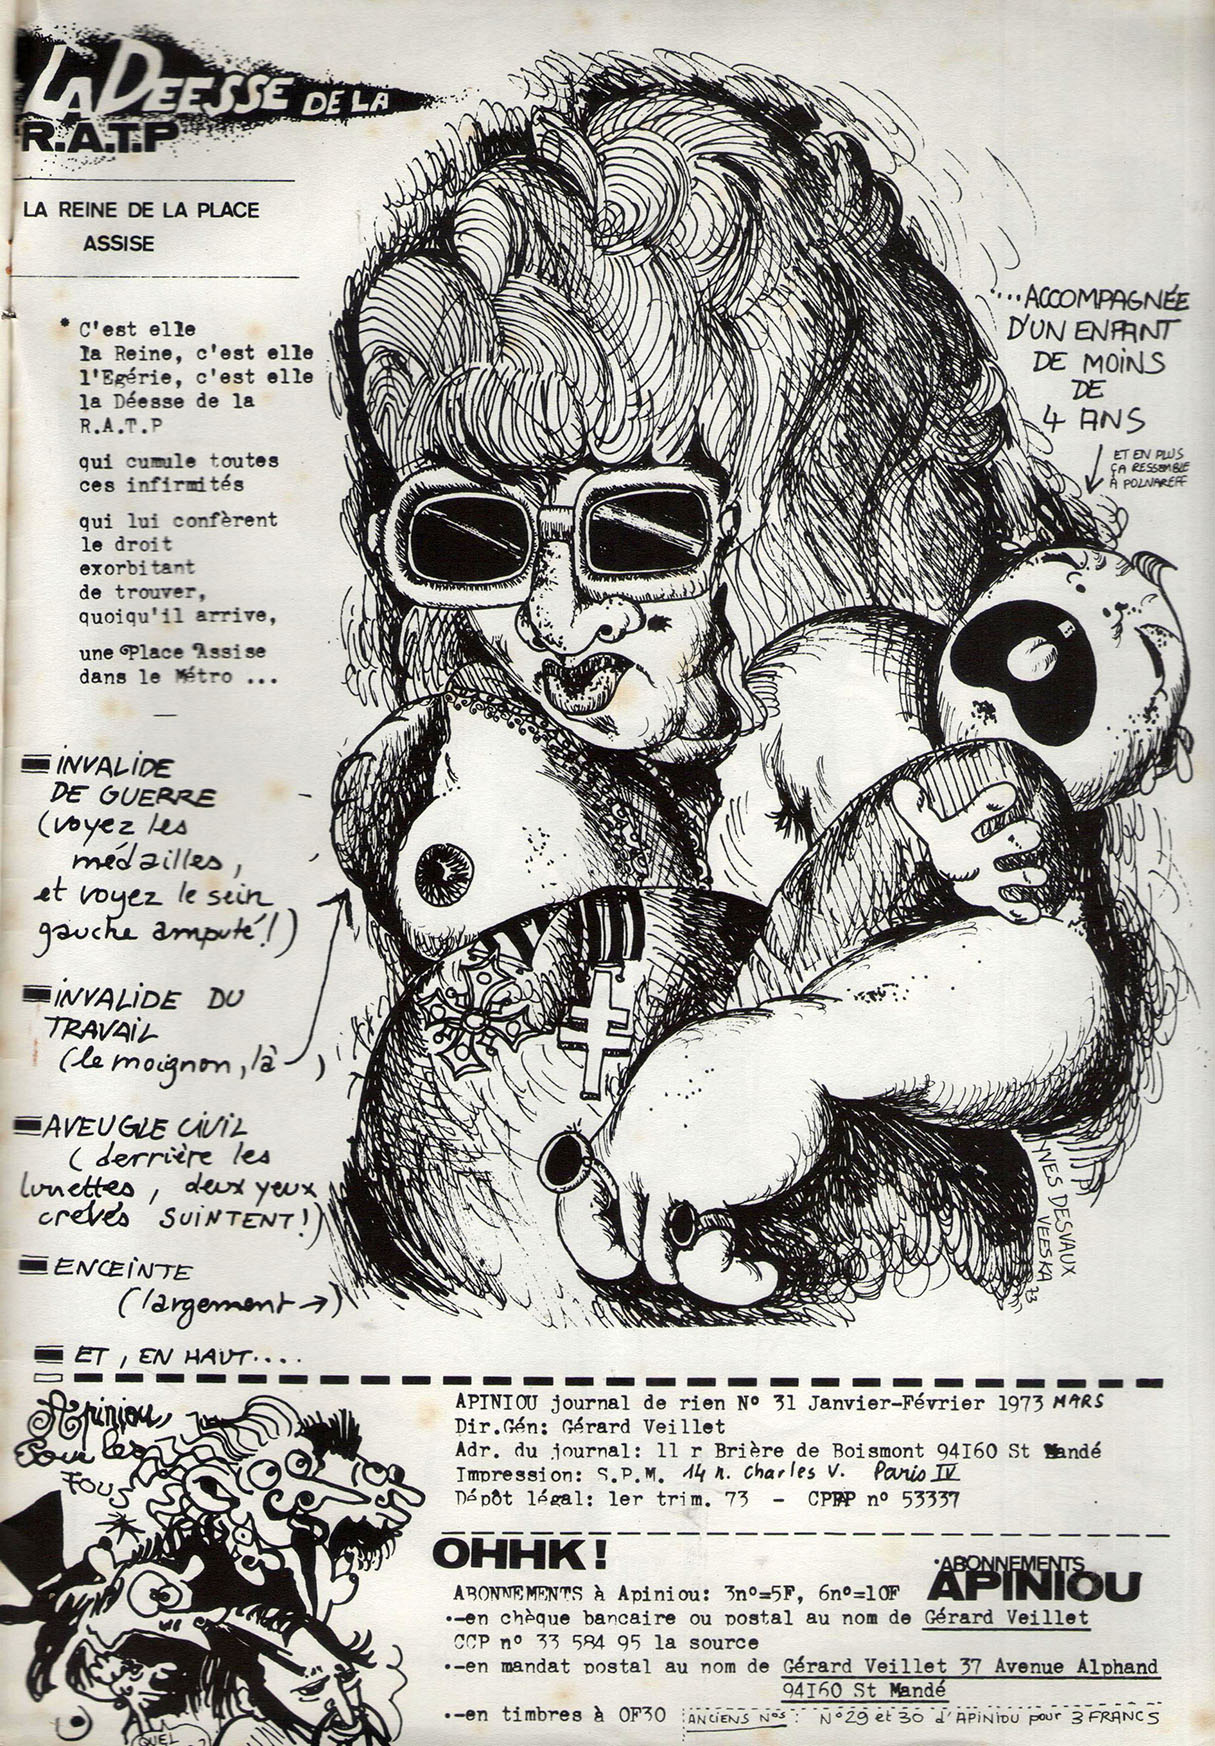 LA DEESSE DE LA
R.A.T.P
LA REINE DE LA PLACE
ASSISE
* C'est elle
la Reine, c'est elle
l'Egérie, c'est elle
la Déesse de la
R.A.T.P
qui cumule toutes
ces infirmités
qui lui confèrent
le droit
exorbitant
de trouver,
quoiqu'il arrive,
une Place Assise
dans le Métro ...
INVALIDE
DE GUERRE
(voyez les
médailles,
et voyez le sein
gauche amputé!)
INVALIDE DU
TRAVAIL
(le moignon, là )
AVEUGLE CIVIL
(derrière les
lunettes, deux yeux
crevés SUINTENT!)
ENCEINTE
(largement →)
ET, EN HAUT....
....ACCOMPAGNÉE
D'UN ENFANT
DE MOINS
DE
4 ANS
ET EN PLUS
ÇA RESSEMBLE
À POLNAREFF
YVES DESVAUX
VEESKA 73
Apiniou
pour les
FOUS
QUEL
APINIOU journal de rien N° 31 Janvier-Février 1973 MARS
Dir.Gén: Gérard Veillet
Adr. du journal: 11 r Brière de Boismont 94160 St Mandé
Impression: S.P.M. 14 r. Charles V. Paris IV
Dépôt légal: 1er trim. 73 - CPPAP n° 53337
OHHK!
ABONNEMENTS
APINIOU
ABONNEMENTS à Apiniou: 3n°=5F, 6n°=10F
.-en chèque bancaire ou postal au nom de Gérard Veillet
CCP n° 33 584 95 la source
.-en mandat postal au nom de Gérard Veillet 37 Avenue Alphand
94160 St Mandé
.-en timbres à 0F30 ANCIENS Nos: N°29 et 30 d'APINIOU pour 3 FRANCS